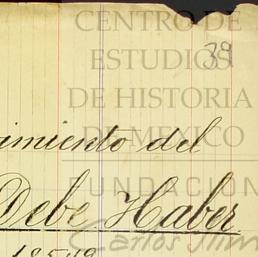 CENTRO DE
ESTUDIOS
39
DE HISTORIA
DE MEXICO
imiento del
FUNDACION
Debe Haber
Carlos